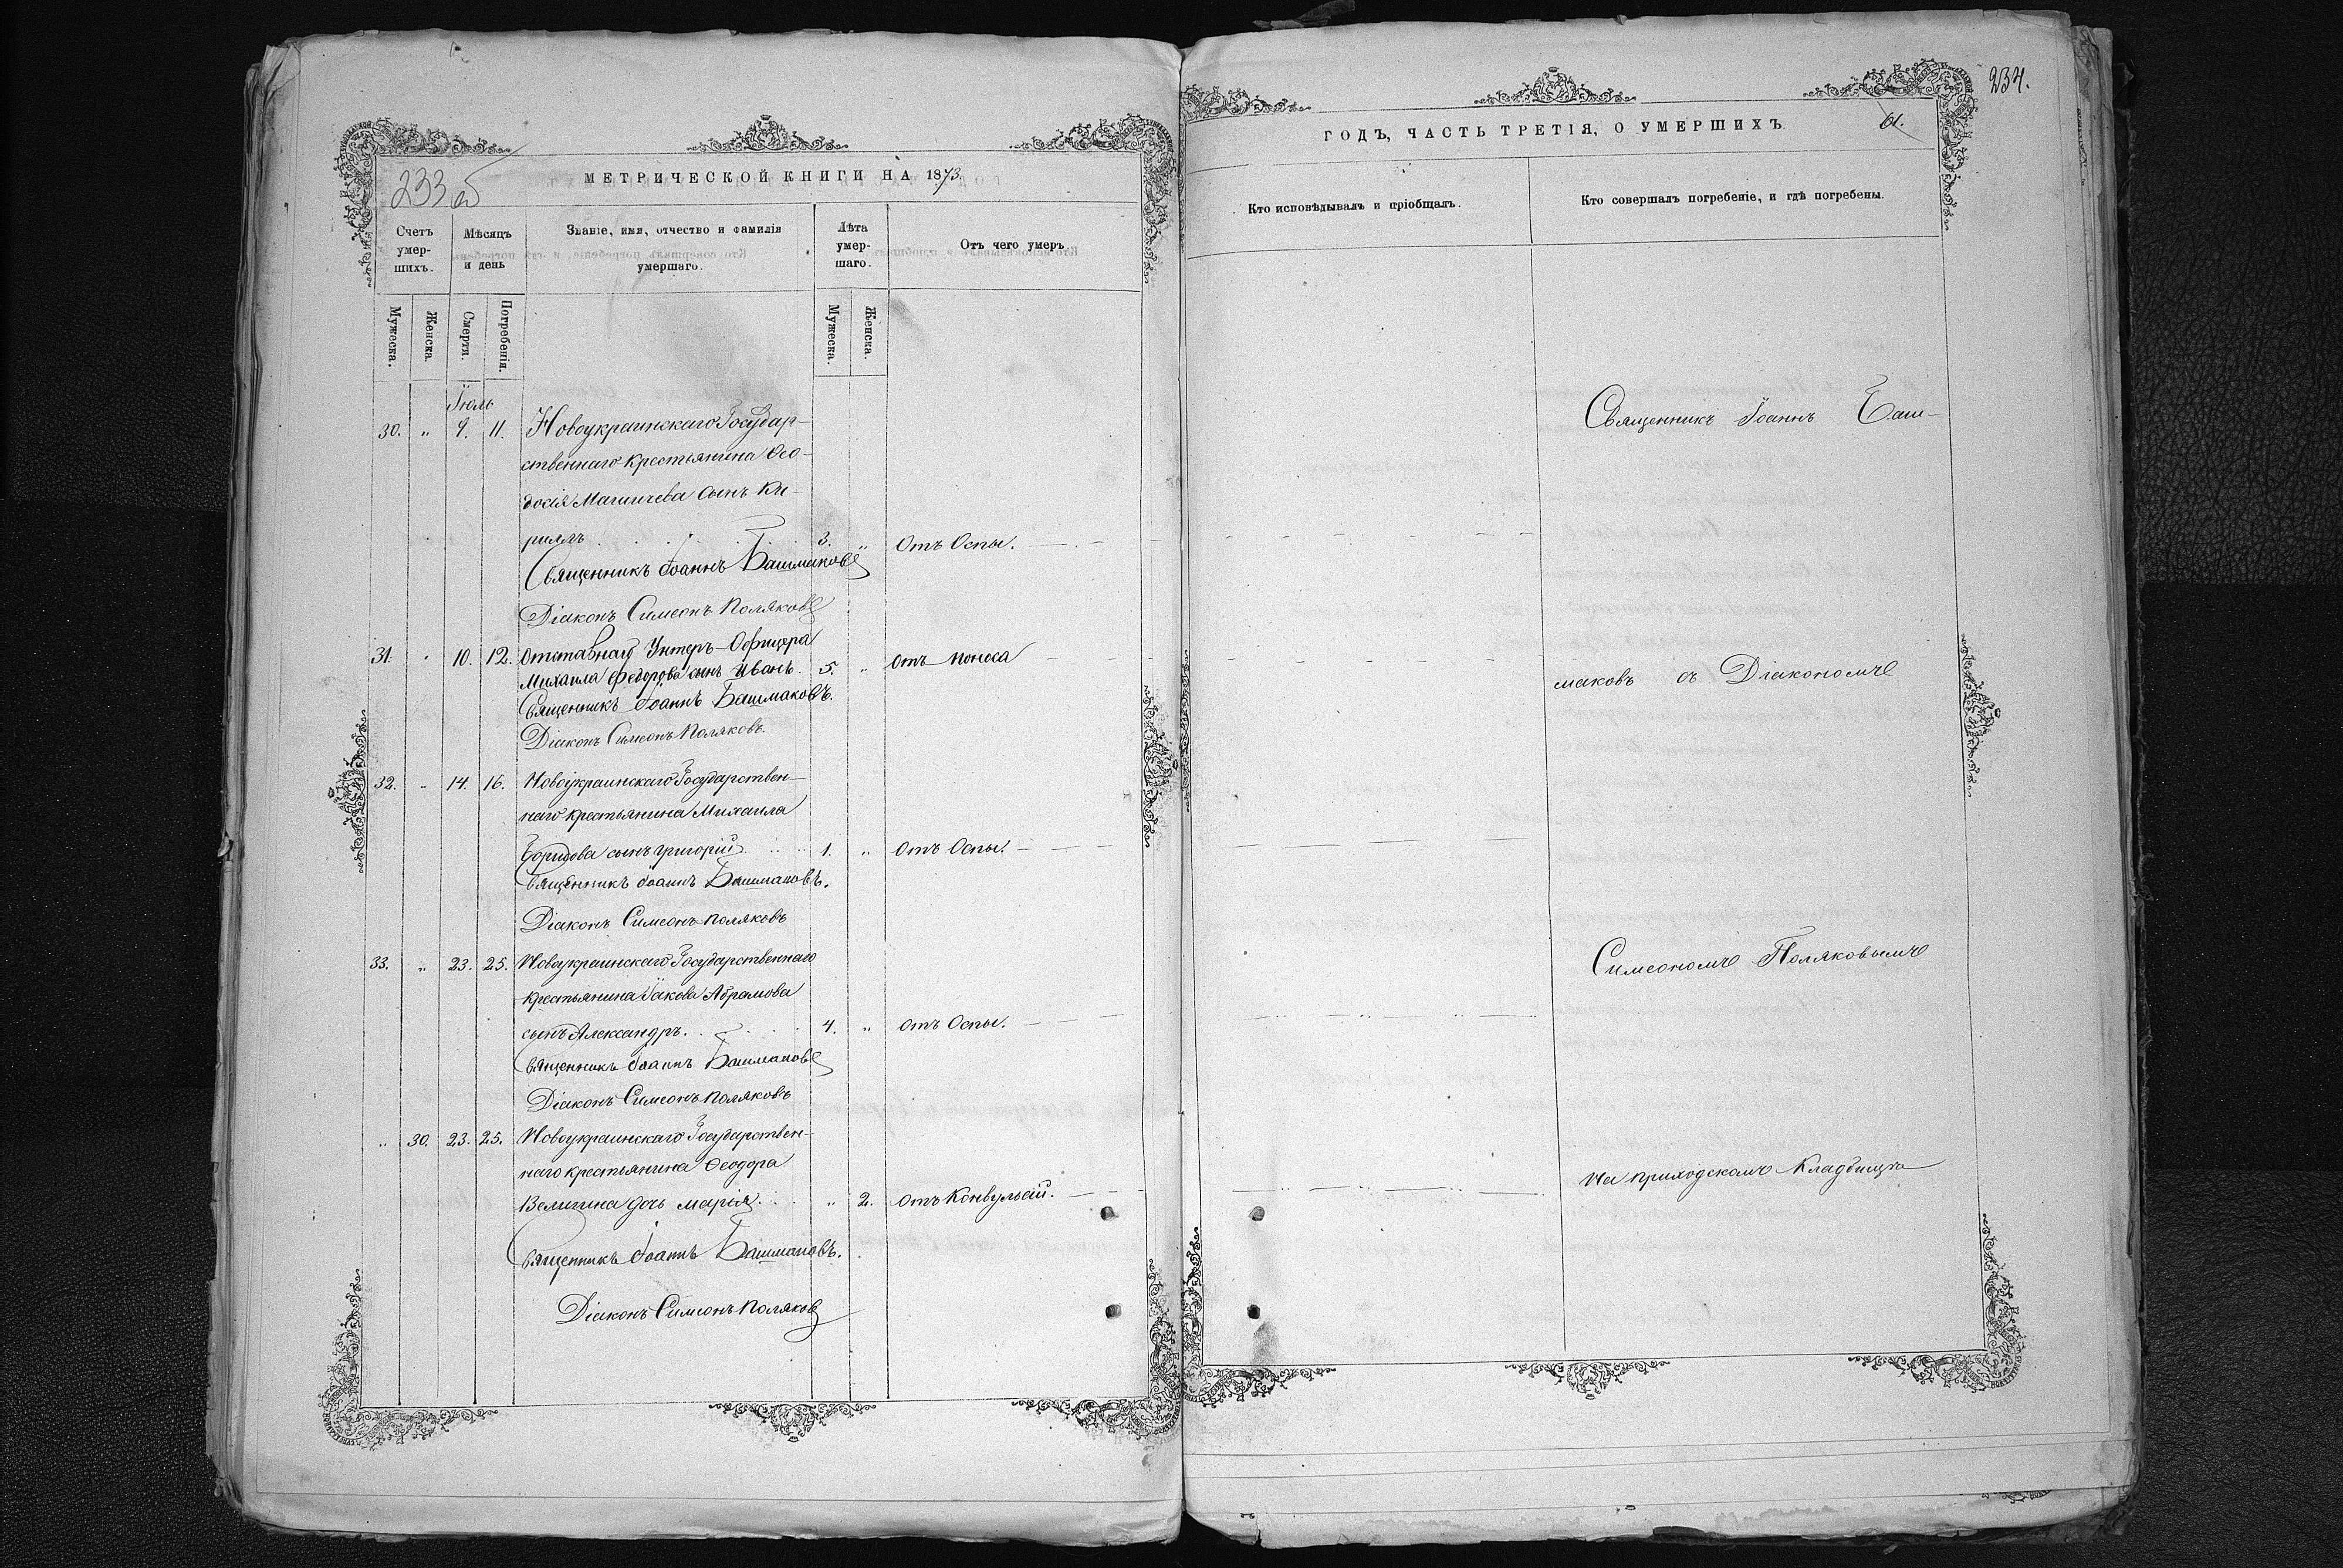 233 об
МЕТРИЧЕСКОЙ КНИГИ НА 1873.
Счетъ умер-шихъ.
Мѣсяцъ и день
Званіе, имя, отчество и фамилія умершаго.
Лѣта умер-шаго.
Отъ чего умеръ
Мужеска.
Женска.
Смерти.
Погребенія.
Мужеска.
Женска.
Іюль
30. „ 9. 11. Новоукраинскаго Государ-
ственнаго крестьянина Ѳео-
досія сынъ Ки-
риллъ 3. „ Отъ Оспы.
Священникъ Іоаннъ Башмаковъ
Діаконъ Симеонъ Поляковъ
31. „ 10. 12. Отставнаго Унтеръ-Офицера
Михаила Федорова сынъ Иванъ. 5. „ Отъ поноса
Священникъ Іоаннъ Башмаковъ.
Діаконъ Симеонъ Поляковъ.
32. „ 14. 16. Новоукраинскаго Государствен-
наго крестьянина Михаила
Борисова сынъ Григорій 1. „ Отъ Оспы.
Священникъ Іоаннъ Башмаковъ.
Діаконъ Симеонъ Поляковъ
33. „ 23. 25. Новоукраинскаго Государственнаго
крестьянина Іакова Абрамова
сынъ Александръ. 4. „ Отъ Оспы.
Священникъ Іоаннъ Башмаковъ
Діаконъ Симеонъ Поляковъ
„ 30. 23. 25. Новоукраинскаго Государствен-
наго крестьянина Ѳеодора
дочь Марія. „ 2. Отъ Конвульсій.
Священникъ Іоаннъ Башмаковъ.
Діаконъ Симеонъ Поляковъ
234.
ГОДЪ, ЧАСТЬ ТРЕТІЯ, О УМЕРШИХЪ
61.
Кто исповѣдывалъ и пріобщалъ.
Кто совершалъ погребеніе, и гдѣ погребены.
Священникъ Іоаннъ Баш-
маковъ съ Діакономъ
Симеономъ Поляковымъ
На приходскомъ Кладбищѣ